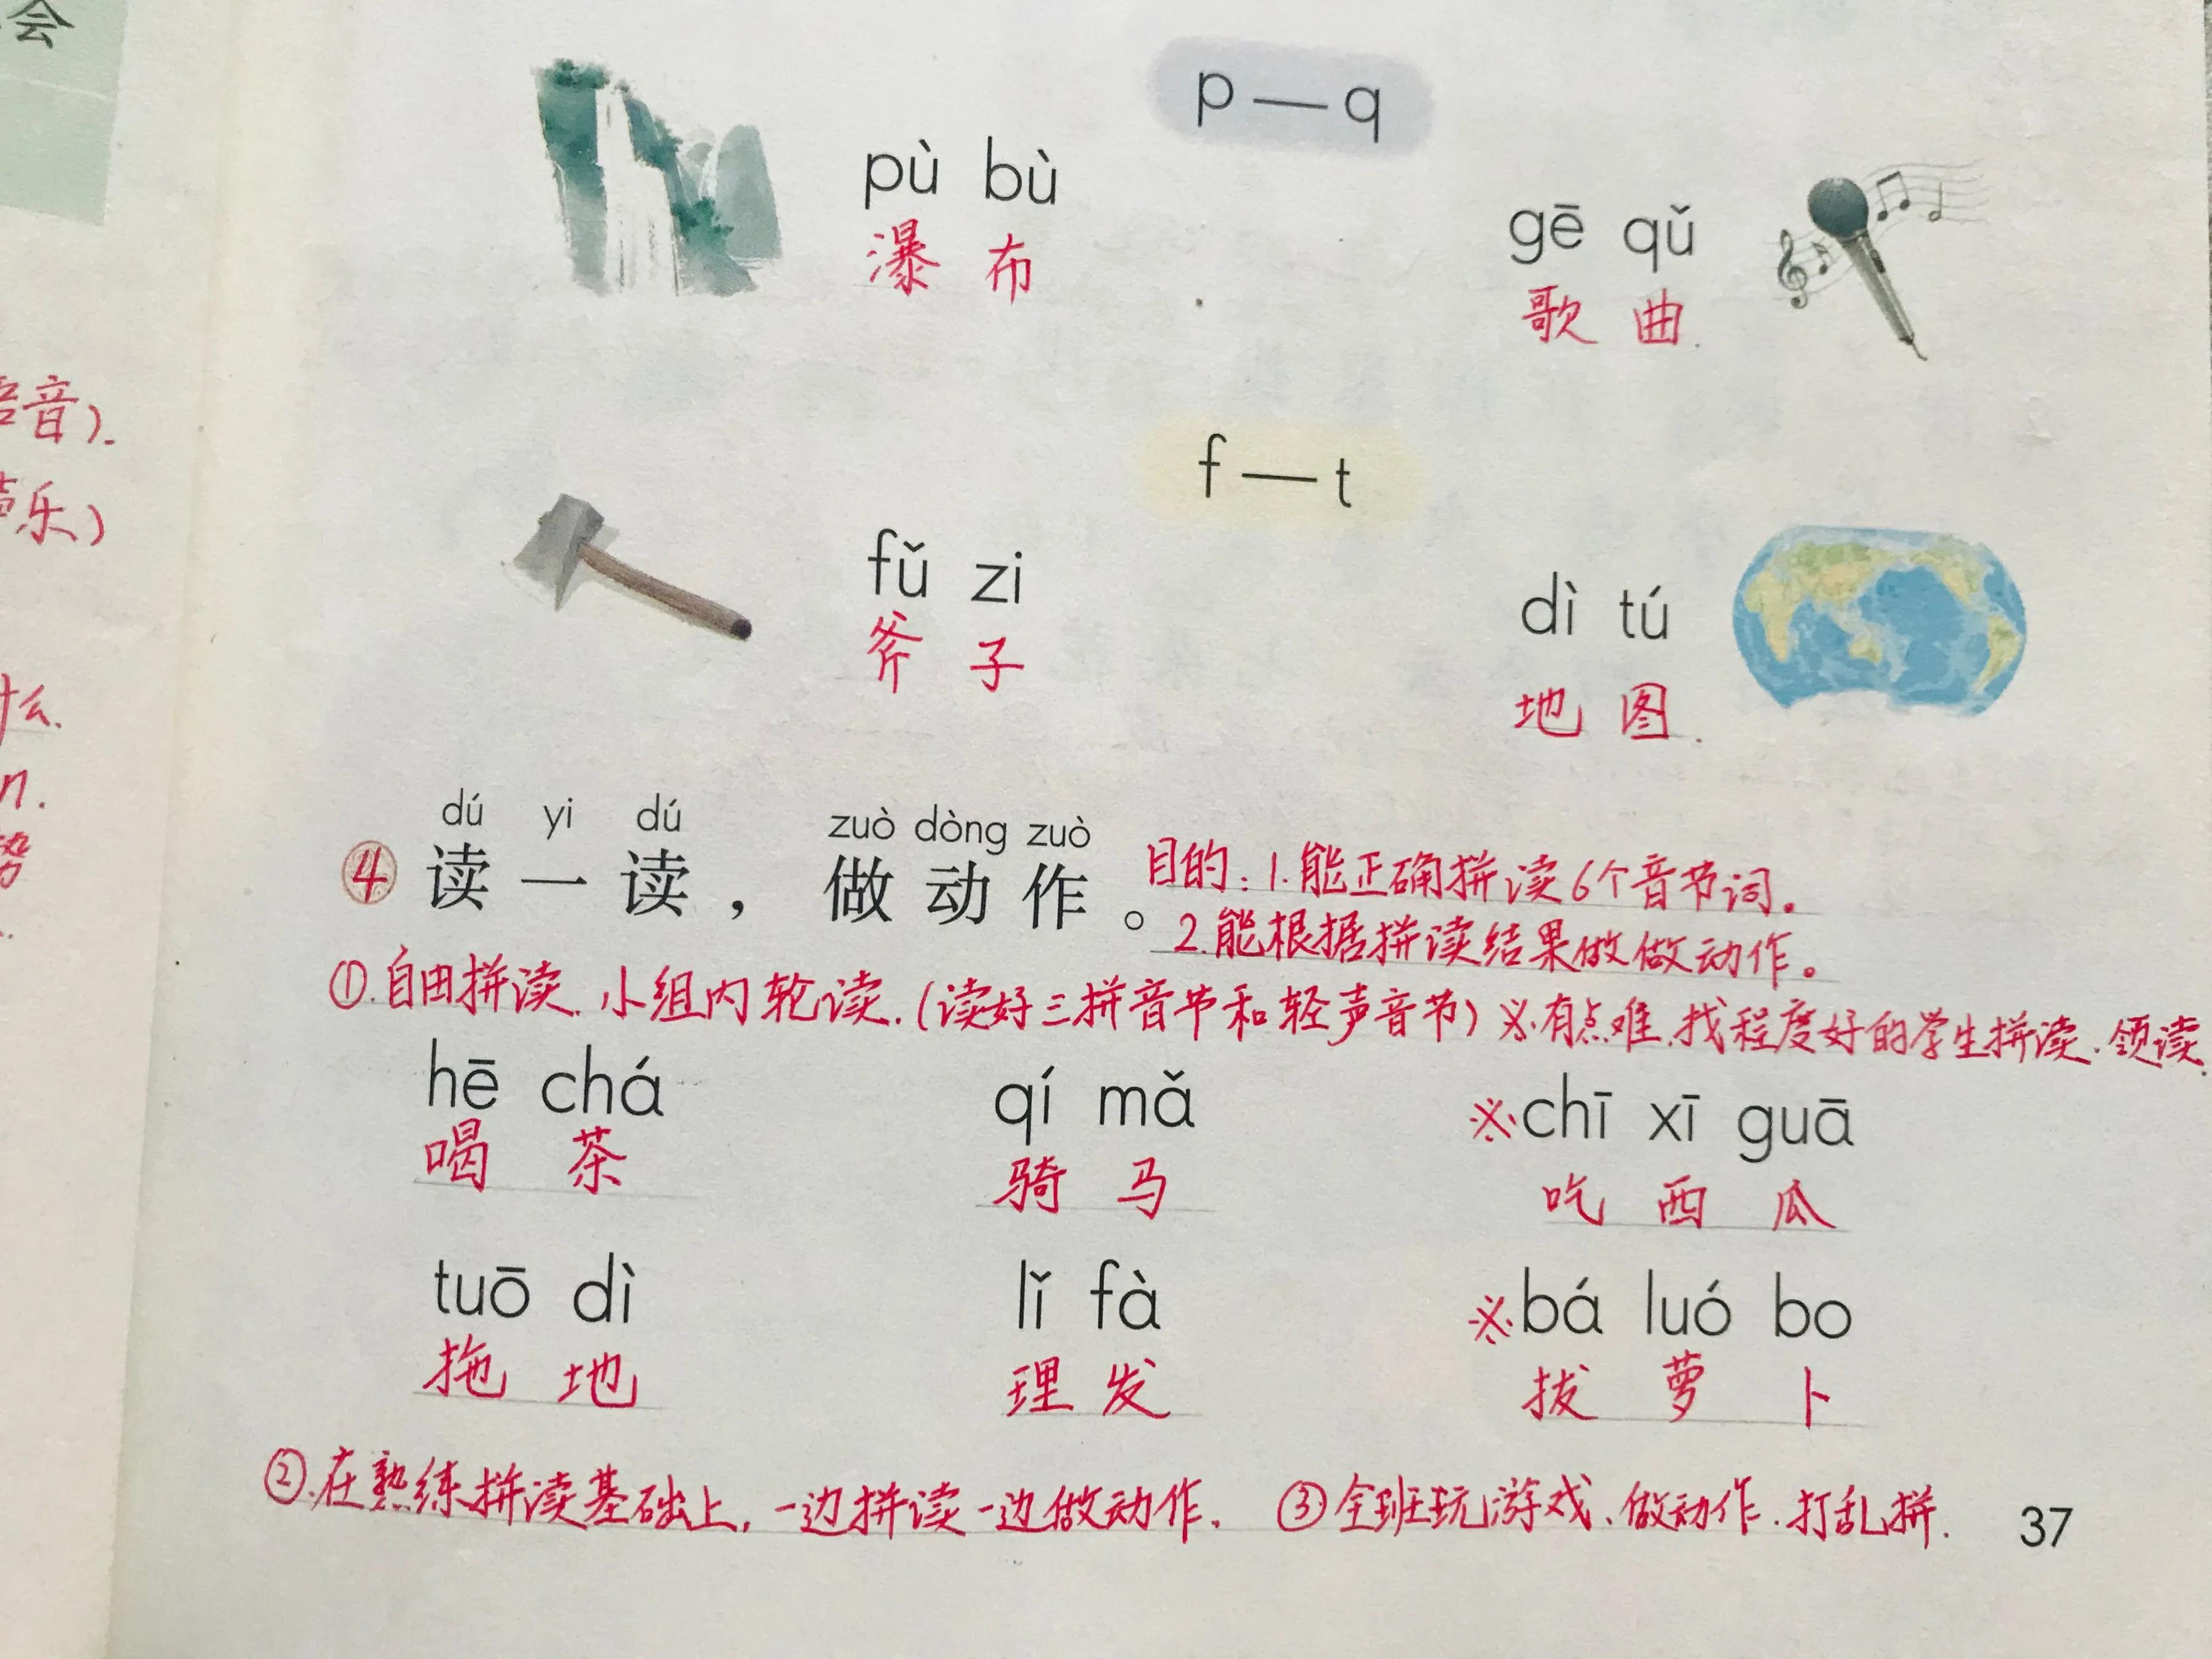 会
p — q
pù bù
瀑 布
gē qǔ
歌 曲.
音).
乐)
f — t
fǔ zi
斧 子
dì tú
地 图.
什么.
n.
势
dú yi dú zuò dòng zuò
④ 读 一 读 , 做 动 作 。
目的: 1.能正确拼读6个音节词。
2.能根据拼读结果做做动作。
①.自由拼读.小组内轮读.(读好三拼音节和轻声音节) ※有点难.找程度好的学生拼读.领读.
hē chá qí mǎ ※chī xī guā
喝 茶 骑 马 吃 西 瓜
tuō dì lǐ fà ※bá luó bo
拖 地 理 发 拔 萝 卜
②.在熟练拼读基础上,一边拼读一边做动作. ③全班玩游戏、做动作.打乱拼.
37